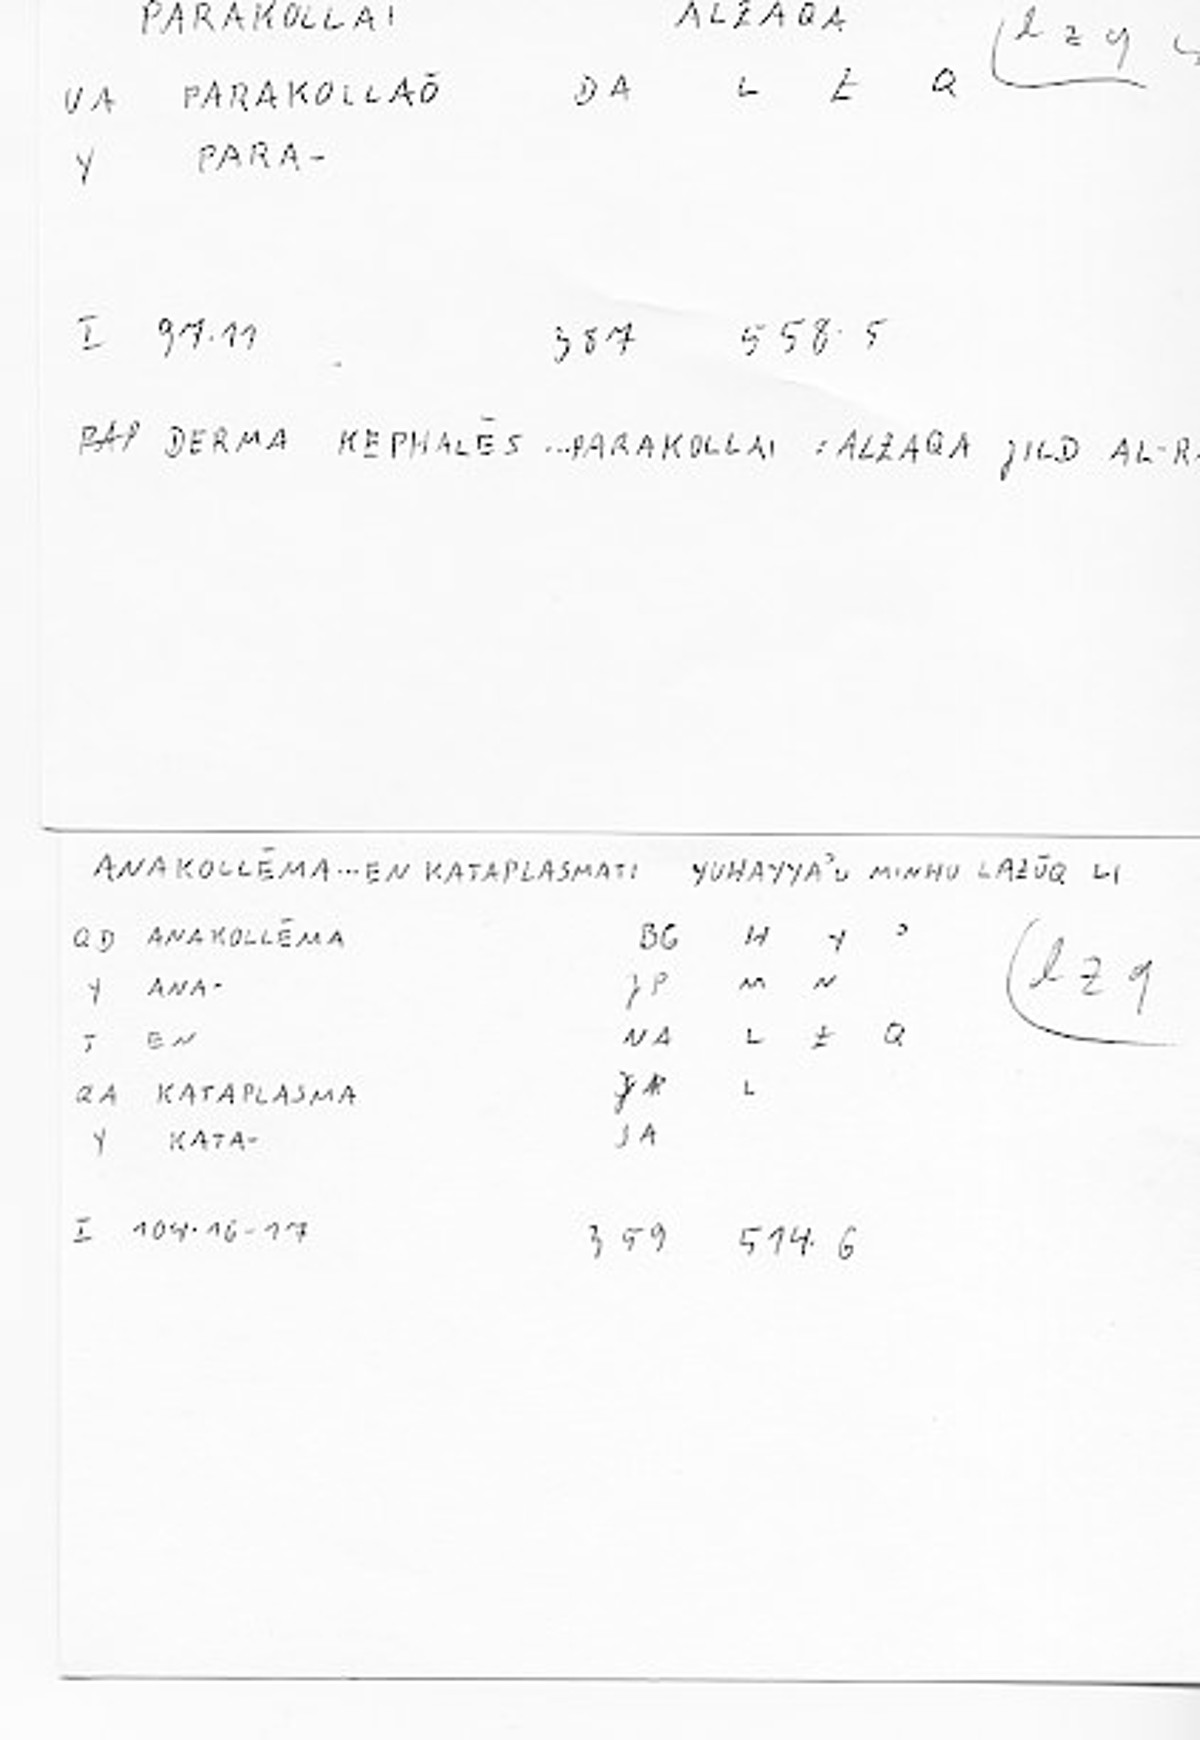 PARAKOLLAI ALZAQA lzq
VA PARAKOLLAŌ DA L Z Q
Y PARA-
I 97.11 387 558.5
PAP DERMA KEPHALĒS ...PARAKOLLAI : ALZAQA JILD AL-R
ANAKOLLĒMA...EN KATAPLASMATI YUHAYYAʾU MINHU LAZŪQ LI
QD ANAKOLLĒMA BG H Y ʾ lzq
Y ANA- JP M N
T EN NA L Z Q
QA KATAPLASMA L
Y KATA- JA
I 104.16-17 359 514.6